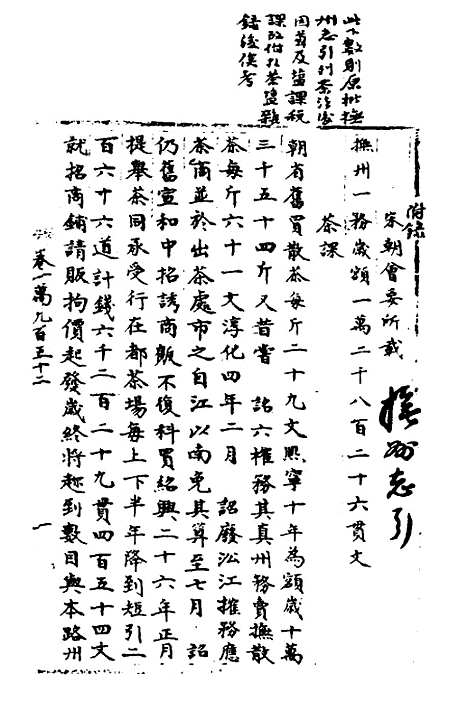 此下數則原批撫
州志引列茶注後
因茶及鹽課稅
課改附扎茶鹽類
錄後俟考
附錄
宋朝會要所載
撫州志引
撫州一務歲額一萬二千八百二十六貫文
茶課
朝有舊買散茶每斤二十九文熙寧十年為額歲十萬
三十五十四斤又昔嘗 詔六榷務其真州務賣撫散
茶每斤六十一文淳化四年二月 詔廢沿江榷務應
茶商並於出茶處市之自江以南免其算至七月 詔
仍舊宣和中招誘商販不復科買紹興二十六年正月
提舉茶同承受行在都茶場每上下半年降到短引二
百六十六道計錢六千二百二十九貫四百五十四文
就招商銷請販拘價起發歲終將趂到數目與本路州
卷一萬九百五十二
一